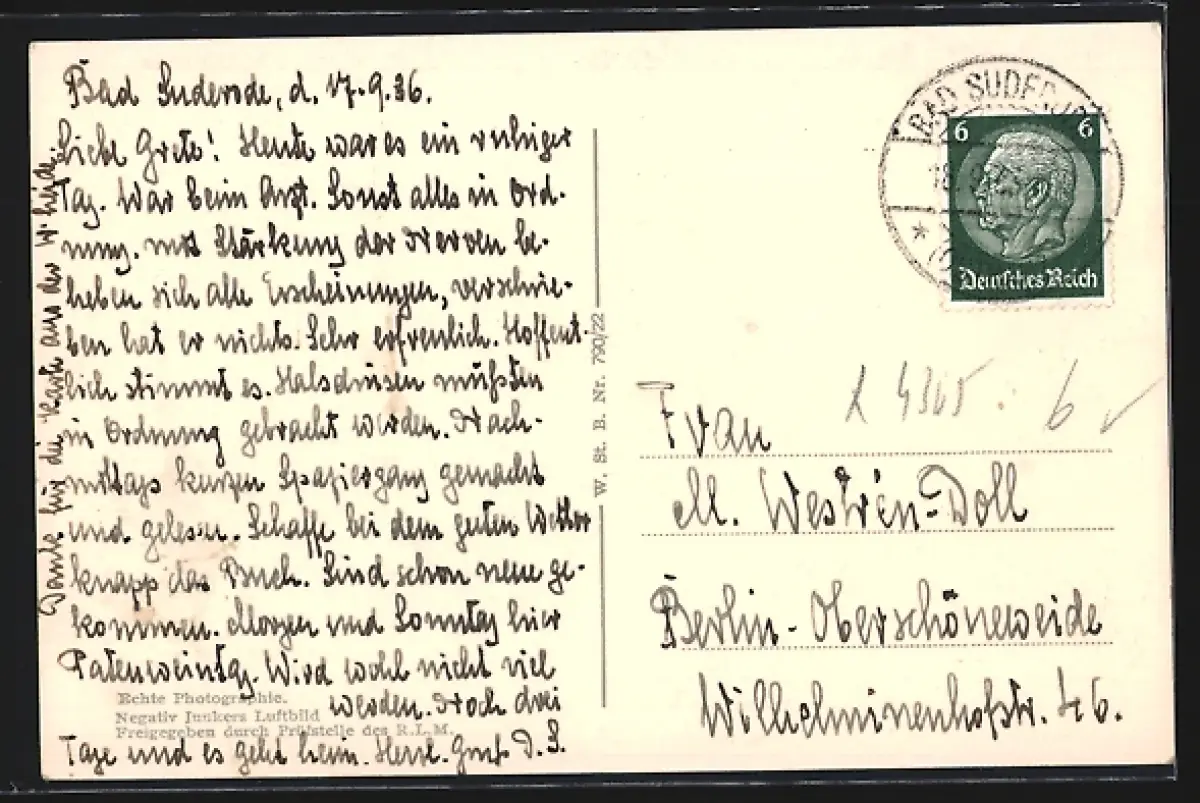 Bad Suderode, d. 17.9.36.
Liebe Grete! Heute war es ein ruhiger
Tag. War beim Arzt. Sonst alles in Ord-
nung. mit Stärkung der Nerven be-
heben sich alle Erscheinungen, verschrie-
ben hat er nichts. Sehr erfreulich. Hoffent-
lich stimmt es. Halsdrüsen müßten
in Ordnung gebracht werden. Nach-
mittags kurzen Spaziergang gemacht
und gelesen. Schaffe bei dem guten Wetter
knapp das Buch. Sind schon neue ge-
kommen. Morgen und Sonntag hier
Patenweintg. Wird wohl nicht viel
werden. Noch drei
Tage und es geht heim. Herzl. Gruß D. S.
Danke für die Karte aus der W. heide.
Echte Photographie.
Negativ Junkers Luftbild
Freigegeben durch Prüfstelle des R.L.M.
W. St. B. Nr. 790/22
BAD SUDERODE
6 6
Deutsches Reich
4365. 6
Frau
M. Westrén-Doll
Berlin-Oberschöneweide
Wilhelminenhofstr. 46.